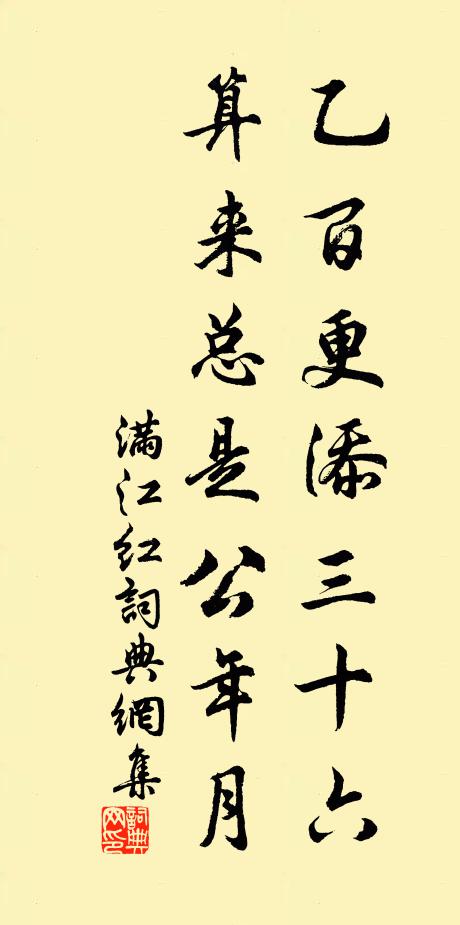 乙百更添三十六
算来总是公年月
满江红詞典網集
詞典
网印